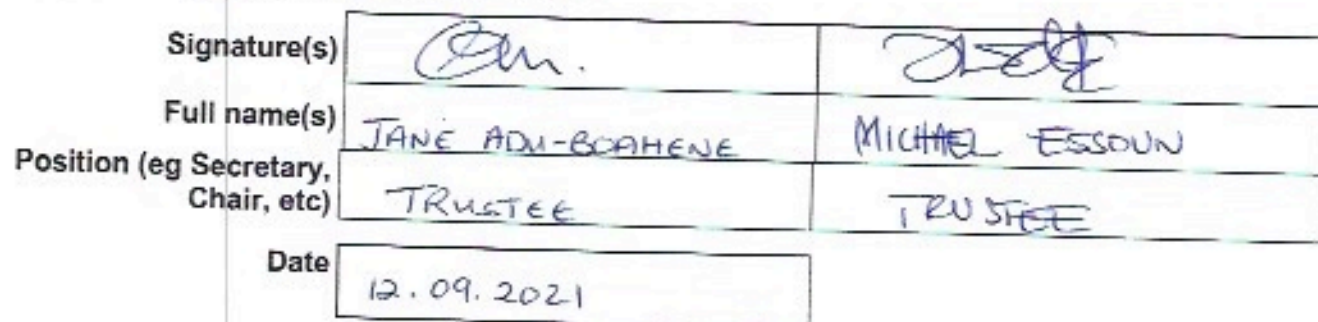 Signature(s)
Full name(s) JANE ADU-BOAHENE MICHAEL ESSOUN
Position (eg Secretary,
Chair, etc) TRUSTEE TRUSTEE
Date 12.09.2021